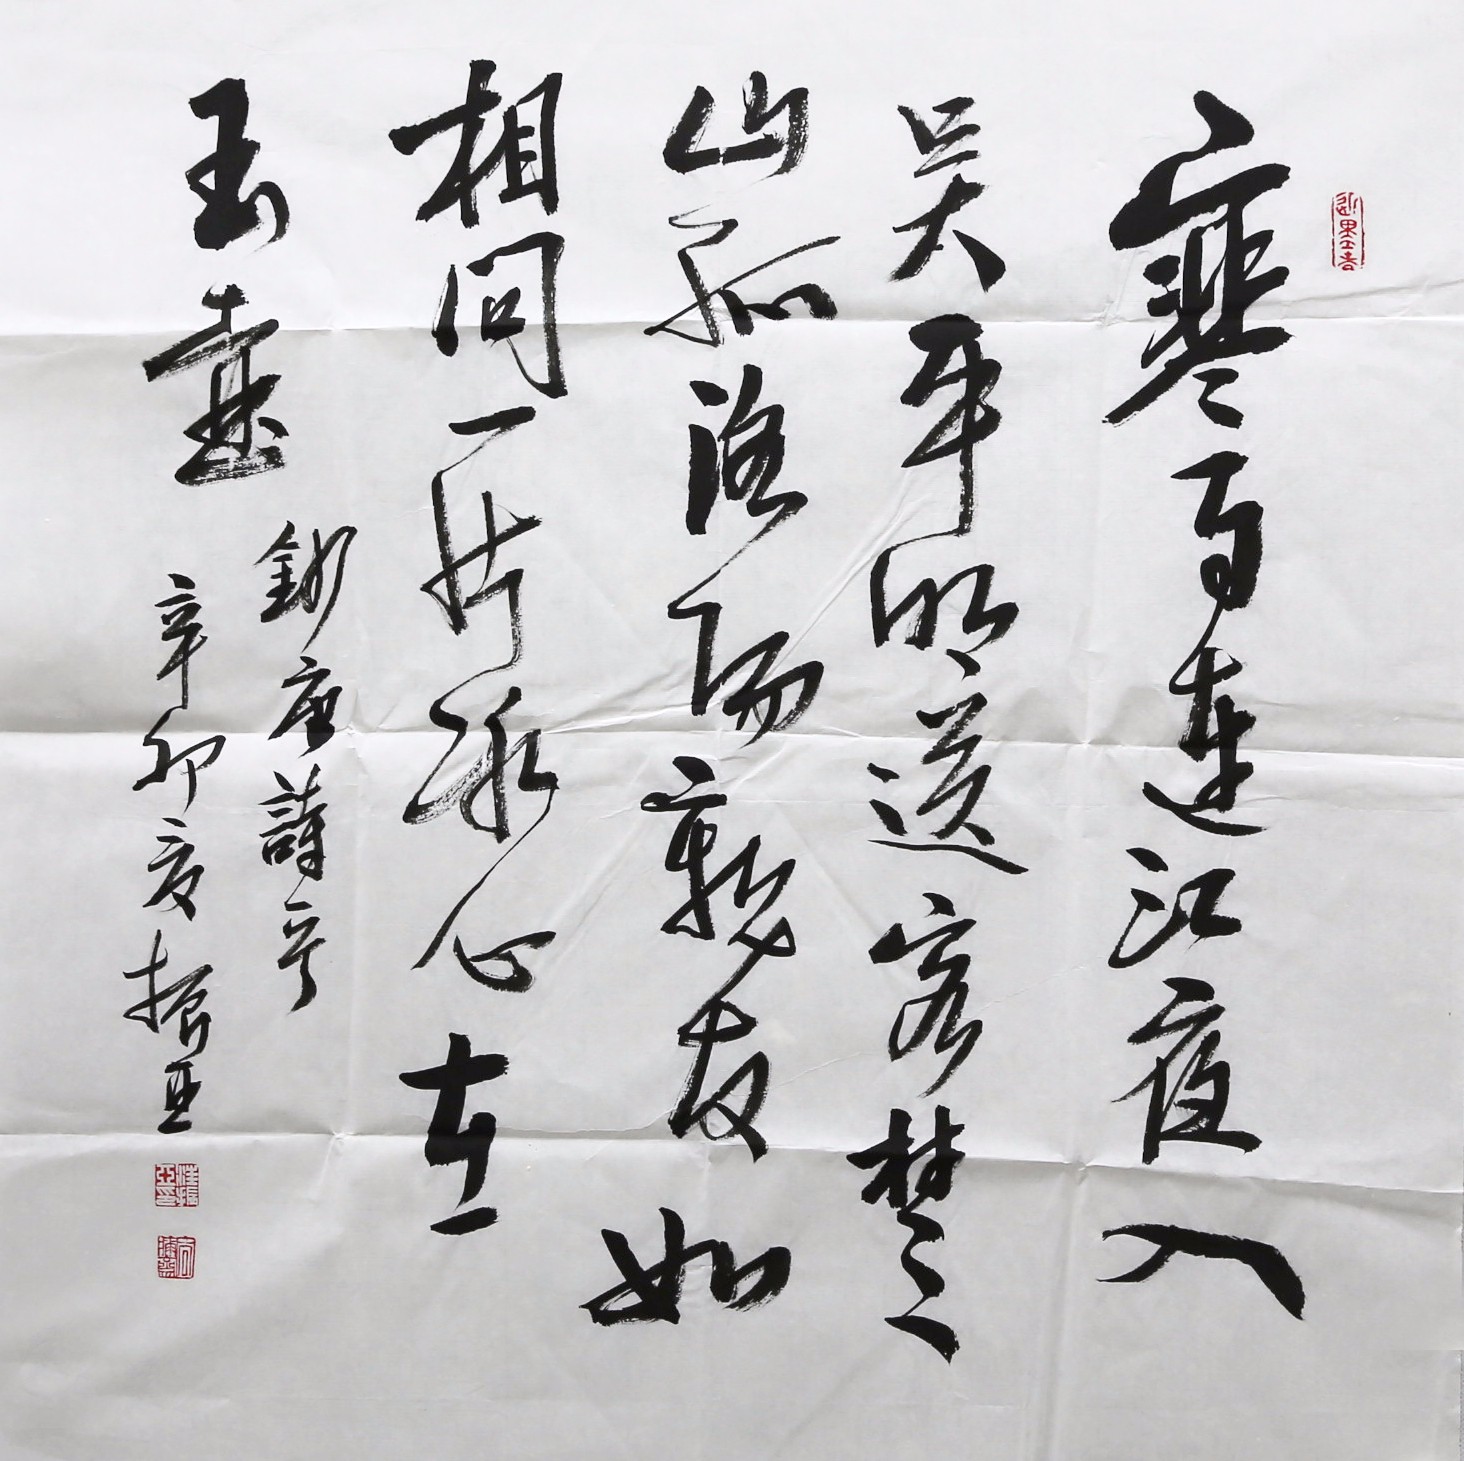 寒雨連江夜入
吴平明送客楚
山孤洛陽親友如
相問一片冰心在
玉壺
鈔唐詩
辛卯夏振亞